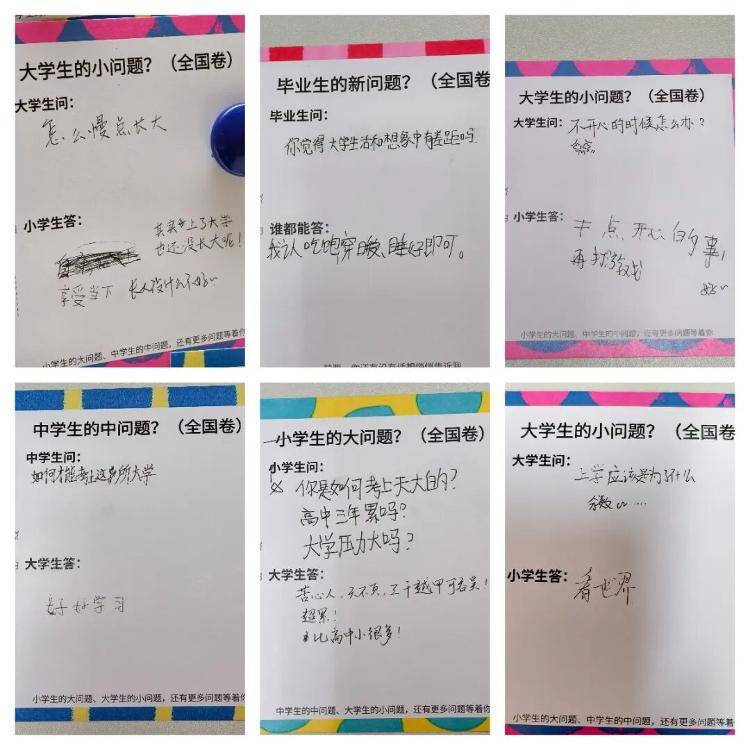 大学生的小问题？（全国卷）
大学生问：
怎么慢点长大
小学生答：
其实考上了大学
也还没长大呢！
享受当下 长大没什么不好~
小学生的大问题、中学生的中问题，还有更多问题等着你
毕业生的新问题？（全国卷
毕业生问：
你觉得大学生活和想象中有差距吗
谁都能答：
我认吃饱穿暖、睡好即可。
大学生的小问题？（全国卷）
大学生问：
不开心的时候怎么办？
小学生答：
干点开心的事！
再打游戏
小学生的大问题、中学生的中问题，还有更多问题等着你
中学生的中问题？（全国卷）
中学生问：
如何才能考上这所大学
大学生答：
好好学习
小学生的大问题、大学生的小问题，还有更多问题等着你
小学生的大问题？（全国卷）
小学生问：
你是如何考上天大的？
高中三年累吗？
大学压力大吗？
大学生答：
苦心人，天不负，三千越甲可吞吴！
超累！
比高中小很多！
中学生的中问题、大学生的小问题，还有更多问题等着你
大学生的小问题？（全国卷
大学生问：
上学应该是为了什么
小学生答：
看世界
小学生的大问题、中学生的中问题，还有更多问题等着你